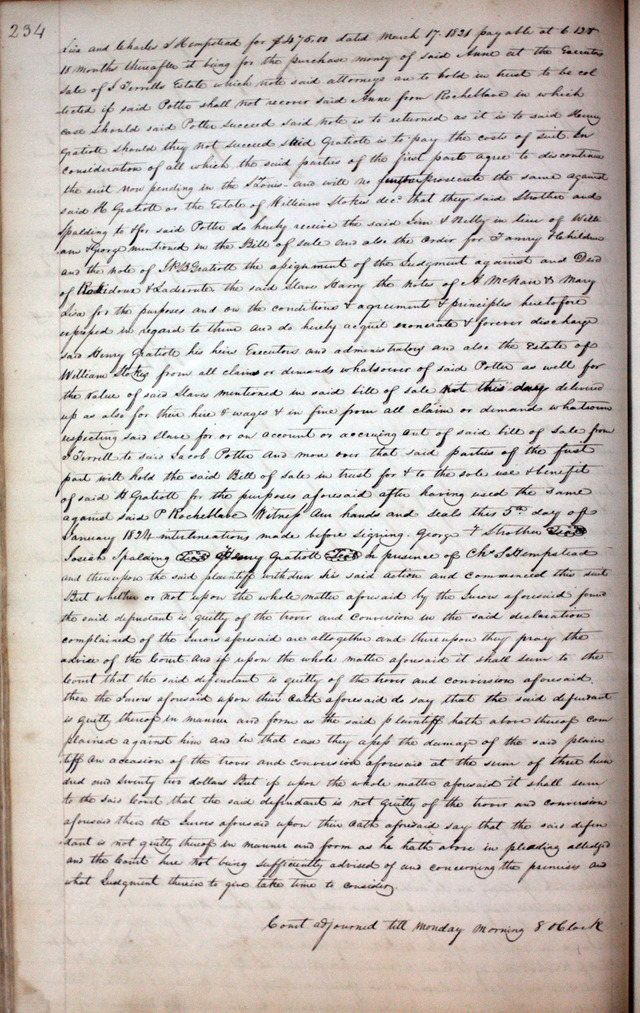 234
Lisa and Charles S Hempstead for $475.00 dated March 17. 1821 payable at 6 12 &
18 months thereafter it being for the purchase money of said Anne at the Executors
Sale of J Terrills Estate which note said attorneys are to hold in trust to be col
lected if said Potter shall not recover said Anne from Rocheblave in which
case should said Potter succeed said note is to returned as it is to said Henry
Gratiott should they not succeed said Gratiott is to pay the costs of suit. In
consideration of all which the said parties of the first part agree to discontinue
the suit now pending in the and will no further prosecute the same against
said H Gratiott or the Estate of William Stokes decd that they said Strother and
Spalding to & for said Potter do hereby receive the said Jim & Nelly in lieu of Willi
am & George mentioned in the Bill of sale and also the order for Fanny & children
and the note of J.P.B Gratiott the assignment of the Judgment against and Deed
of Robidoux & Laderoute the said Slave Harry the notes of A McNair & Mary
Lisa for the purposes and on the conditions & agreements & principles heretofore
expressed in regard to them and do hereby acquit exonerate & forever discharge
said Henry Gratiott his heirs Executors and administrators and also the Estate of
William Stokes from all claims or demands whatsoever of said Potter as well for
the value of said Slaves mentioned in said bill of sale not this day delivered
up as also for their hire & wages & in fine from all claim or demand whatsoever
respecting said slave for or on account or accruing out of said bill of sale from
J Terrill to said Jacob Potter and more over that said parties of the first
part will hold the said Bill of sale in trust for & to the sole use & benefit
of said H Gratiott for the purposes aforesaid after having used the same
against said P Rocheblave Witness our hands and seals this 5th day of
January 1824 interlineations made before signing. George F Strother Seal
Josiah Spalding Seal Henry Gratiott Seal in presence of Chs S Hempstead
and thereupon the said plaintiff withdrew his said action and commenced this suit
But whether or not upon the whole matter aforesaid by the Jurors aforesaid found
the said defendant is guilty of the trover and conversion in the said declaration
complained of the Jurors aforesaid are altogether and thereupon they pray the
advise of the Court. And if upon the whole matter aforesaid it shall seem to the
Court that the said defendant is guilty of the trover and conversion aforesaid
then the Jurors aforesaid upon their Oath aforesaid do say that the said defendant
is guilty thereof in manner and form as the said plaintiff hath above thereof com
plained against him and in that case they assess the damage of the said plain
tiff on occasion of the trover and conversion aforesaid at the sum of three hun
dred and Seventy two dollars But if upon the whole matter aforesaid it shall seem
to the said Court that the said defendant is not guilty of the trover and conversion
aforesaid then the Jurors aforesaid upon their Oath aforesaid say that the said defen
dant is not guilty thereof in manner and form as he hath above in pleading alledged
and the Court here not being sufficiently advised of and concerning the premises and
what Judgment therein to give take time to consider.
Court adjourned till Monday Morning 8 OClock